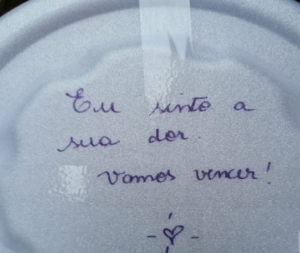 Eu sinto a
sua dor.
Vamos vencer!